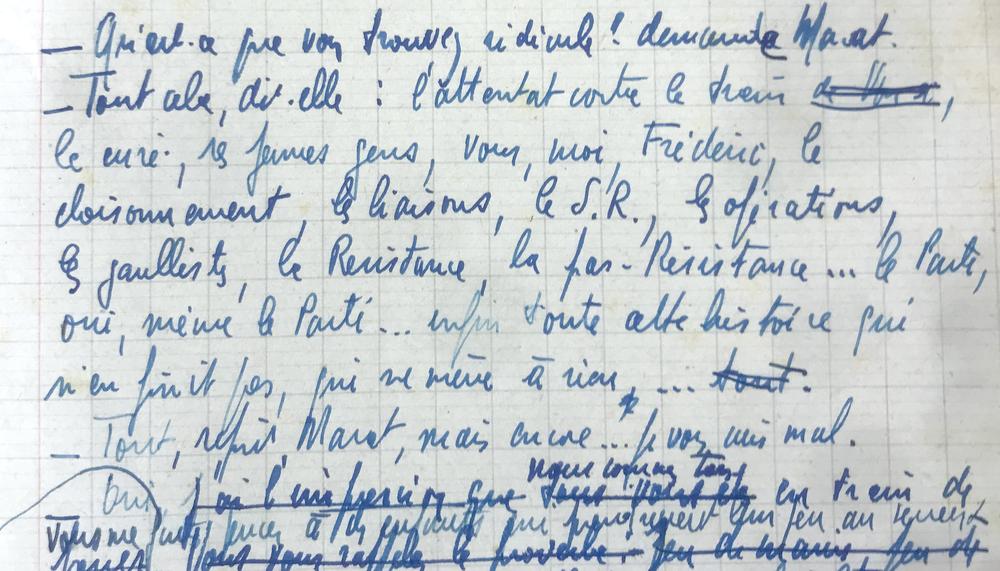 — Qu'est-ce que vous trouvez ridicule ? demanda Marat.
— Tout cela, dit-elle : l'attentat contre le train,
le curé, les jeunes gens, vous, moi, Frédéric, le
cloisonnement, les liaisons, le S.R., les opérations,
les gaullistes, la Résistance, la pas-Résistance... le Parti,
oui, même le Parti... enfin toute cette histoire qui
n'en finit pas, qui ne mène à rien, ... tout.
— Tout, reprit Marat, mais encore... je vous suis mal.
nous sommes tous
Oui j'ai l'impression que en train de
Vous me faites penser à des enfants qui
vous rappelez le proverbe : Jeu de mains jeu de